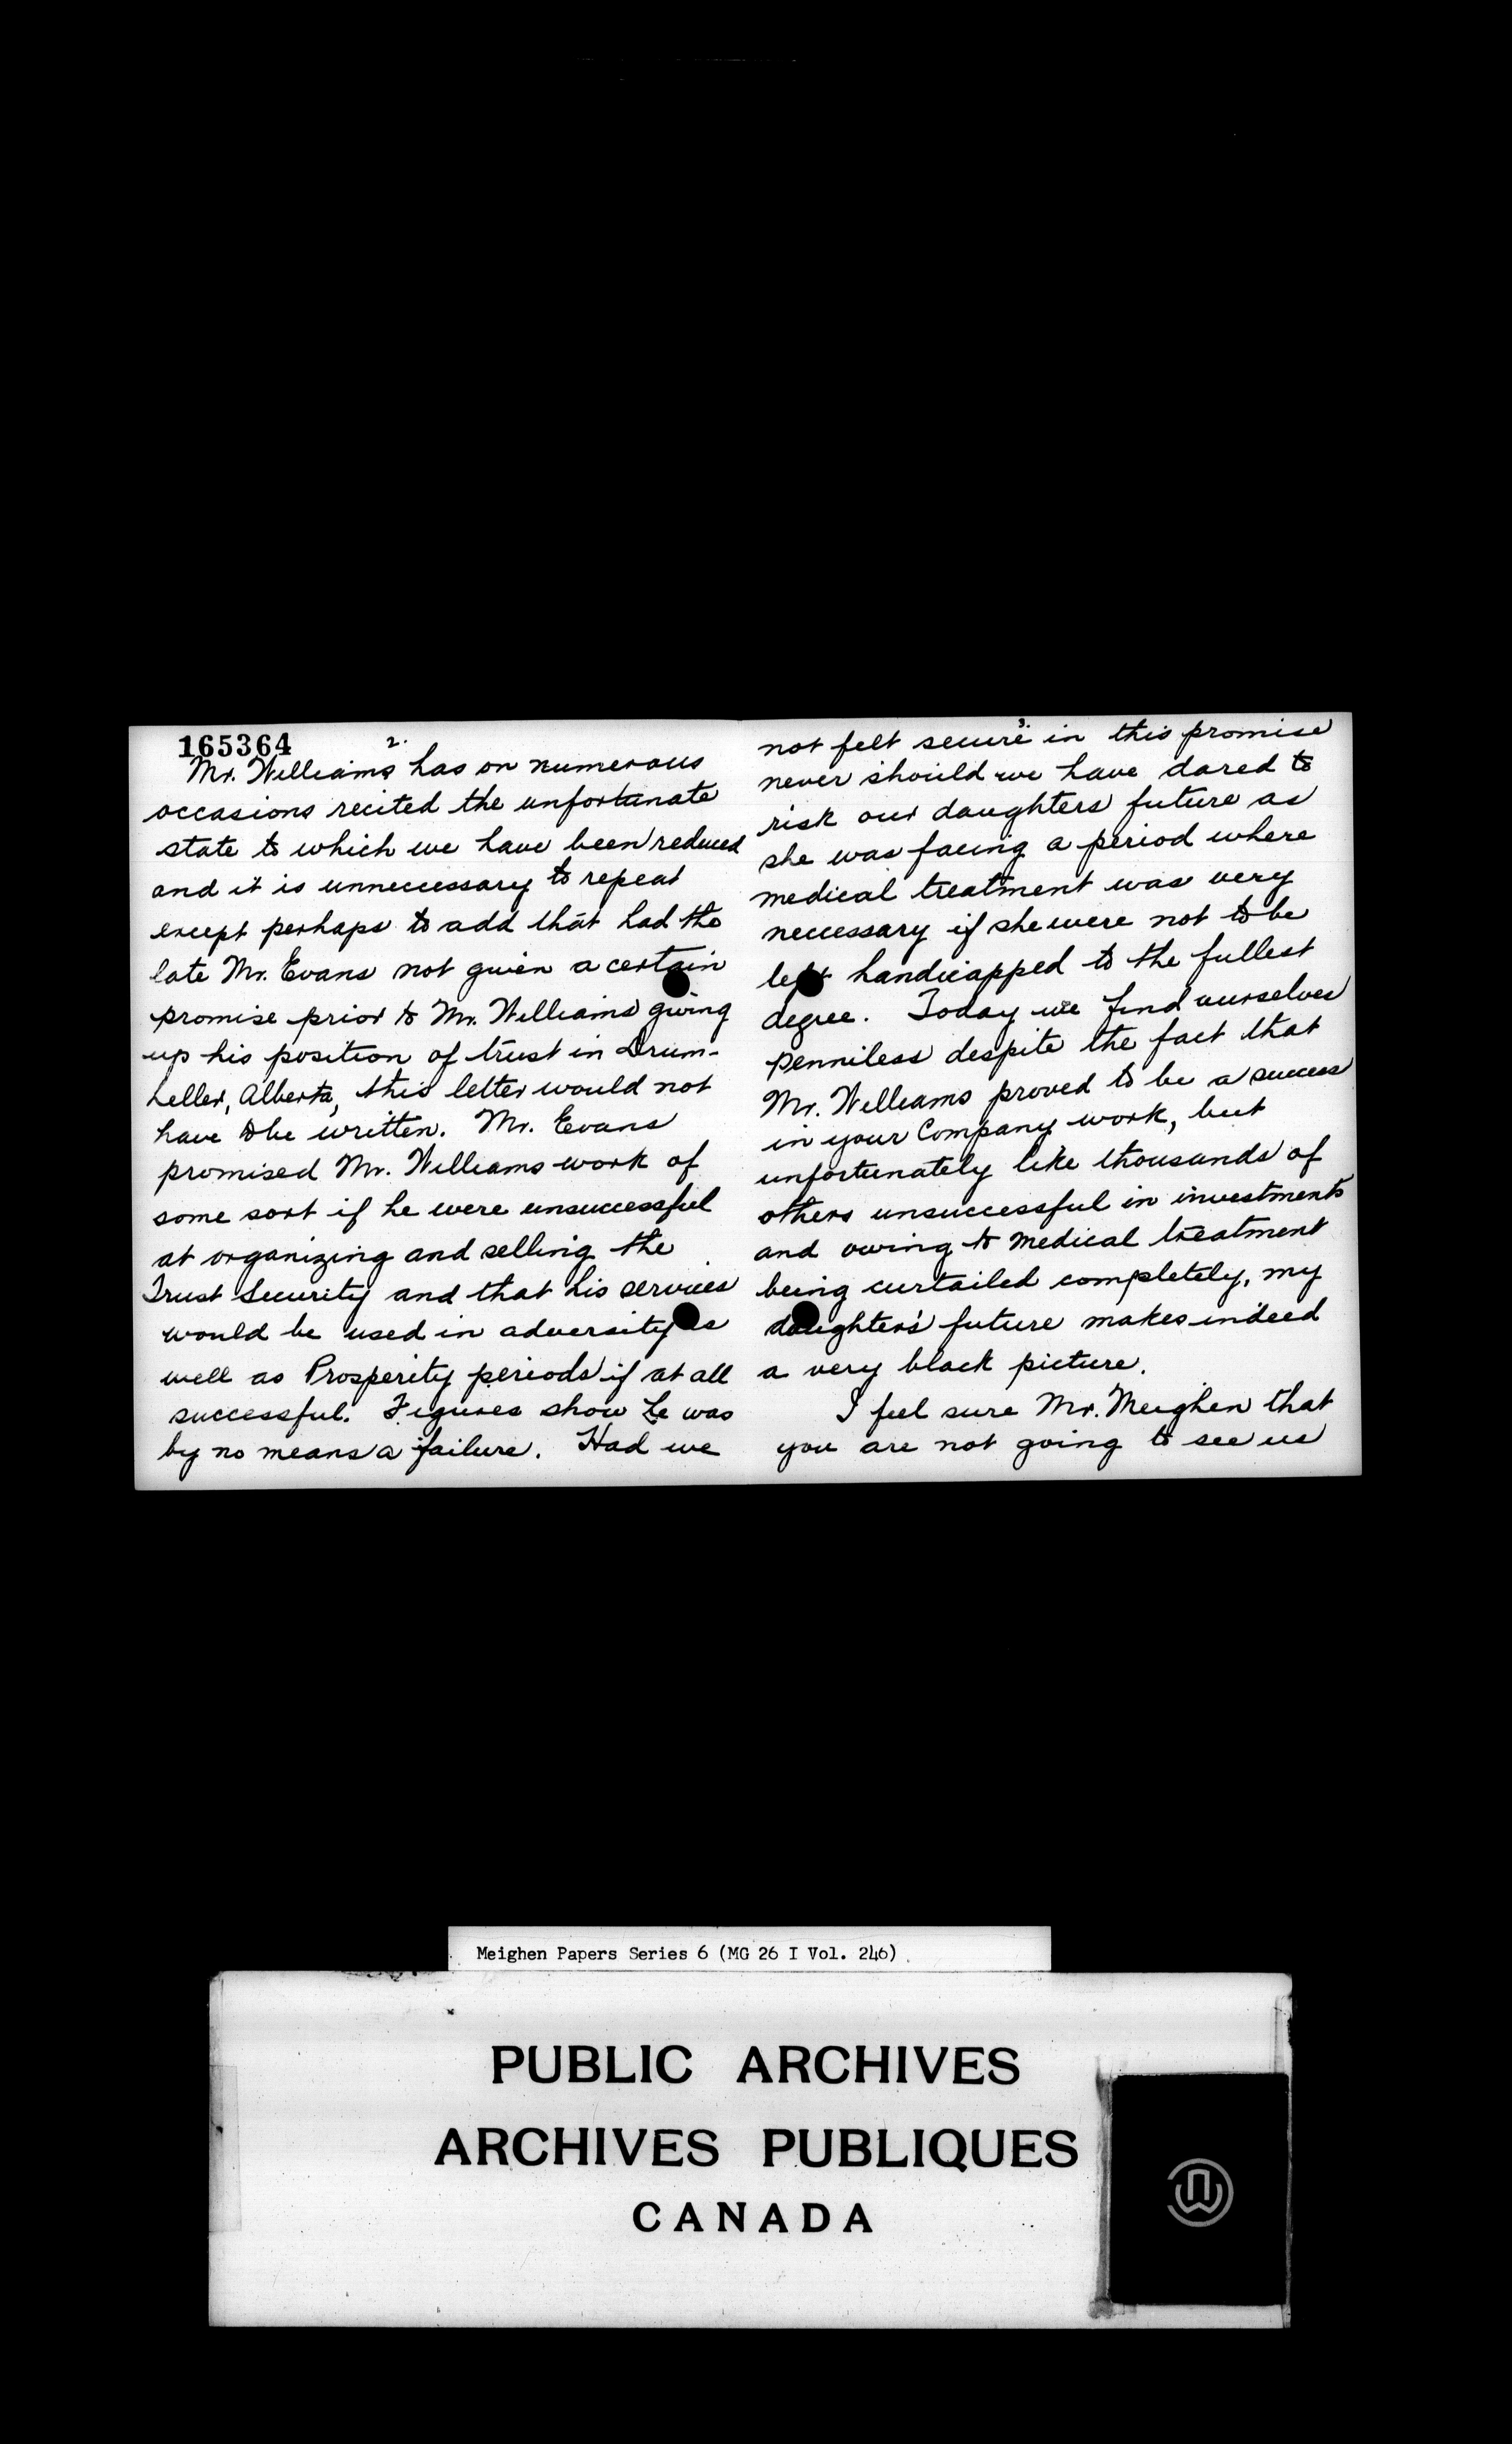 165364
2.
Mr. Williams has on numerous
occasions recited the unfortunate
state to which we have been reduced
and it is unneccessary to repeat
except perhaps to add that had the
late Mr. Evans not given a certain
promise prior to Mr. Williams giving
up his position of trust in Drum-
heller, Alberta, this letter would not
have to be written. Mr. Evans
promised Mr. Williams work of
some sort if he were unsuccessful
at organizing and selling the
Trust Security and that his services
would be used in adversity as
well as Prosperity periods if at all
successful. Figures show he was
by no means a failure. Had we
3.
not felt secure in this promise
never should we have dared to
risk our daughters future as
she was facing a period where
medical treatment was very
neccessary if she were not to be
left handicapped to the fullest
degree. Today we find ourselves
penniless despite the fact that
Mr. Williams proved to be a success
in your Company work, but
unfortunately like thousands of
others unsuccessful in investments
and owing to medical treatment
being curtailed completely, my
daughter's future makes indeed
a very black picture.
I feel sure Mr. Meighen that
you are not going to see us
Meighen Papers Series 6 (MG 26 I Vol. 246)
PUBLIC ARCHIVES
ARCHIVES PUBLIQUES
CANADA